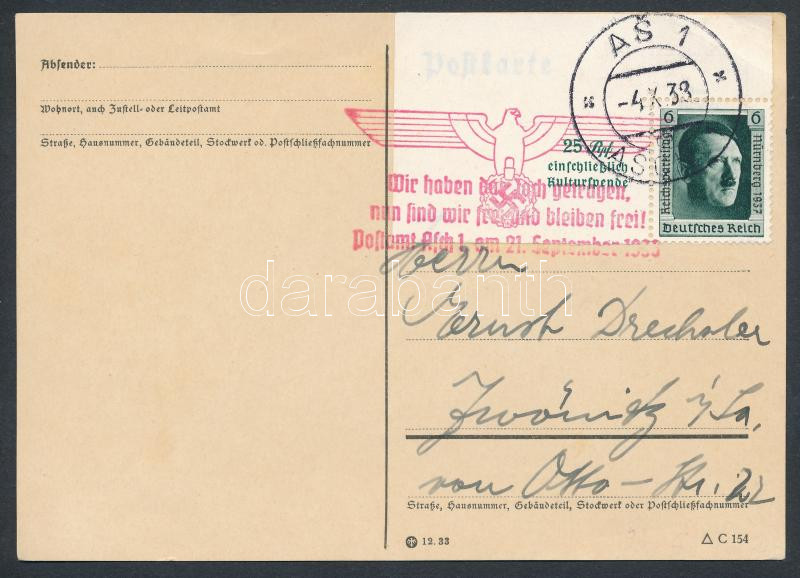 Absender:
Wohnort, auch Zustell- oder Leitpostamt
Straße, Hausnummer, Gebäudeteil, Stockwerk od. Postschließfachnummer
Postkarte
AŠ 1
-4.X.38
25 Rpf.
einschließlich
Kulturspende
6 6
Reichsparteitag
Nürnberg 1937
Deutsches Reich
Wir haben das Joch getragen,
nun sind wir frei und bleiben frei!
Postamt Asch 1, am 21. September 1938
darabanth
Herrn
Ernst Drechsler
Zwönitz i/Sa.
von Otto-Str. 22
Straße, Hausnummer, Gebäudeteil, Stockwerk oder Postschließfachnummer
12.33
C 154